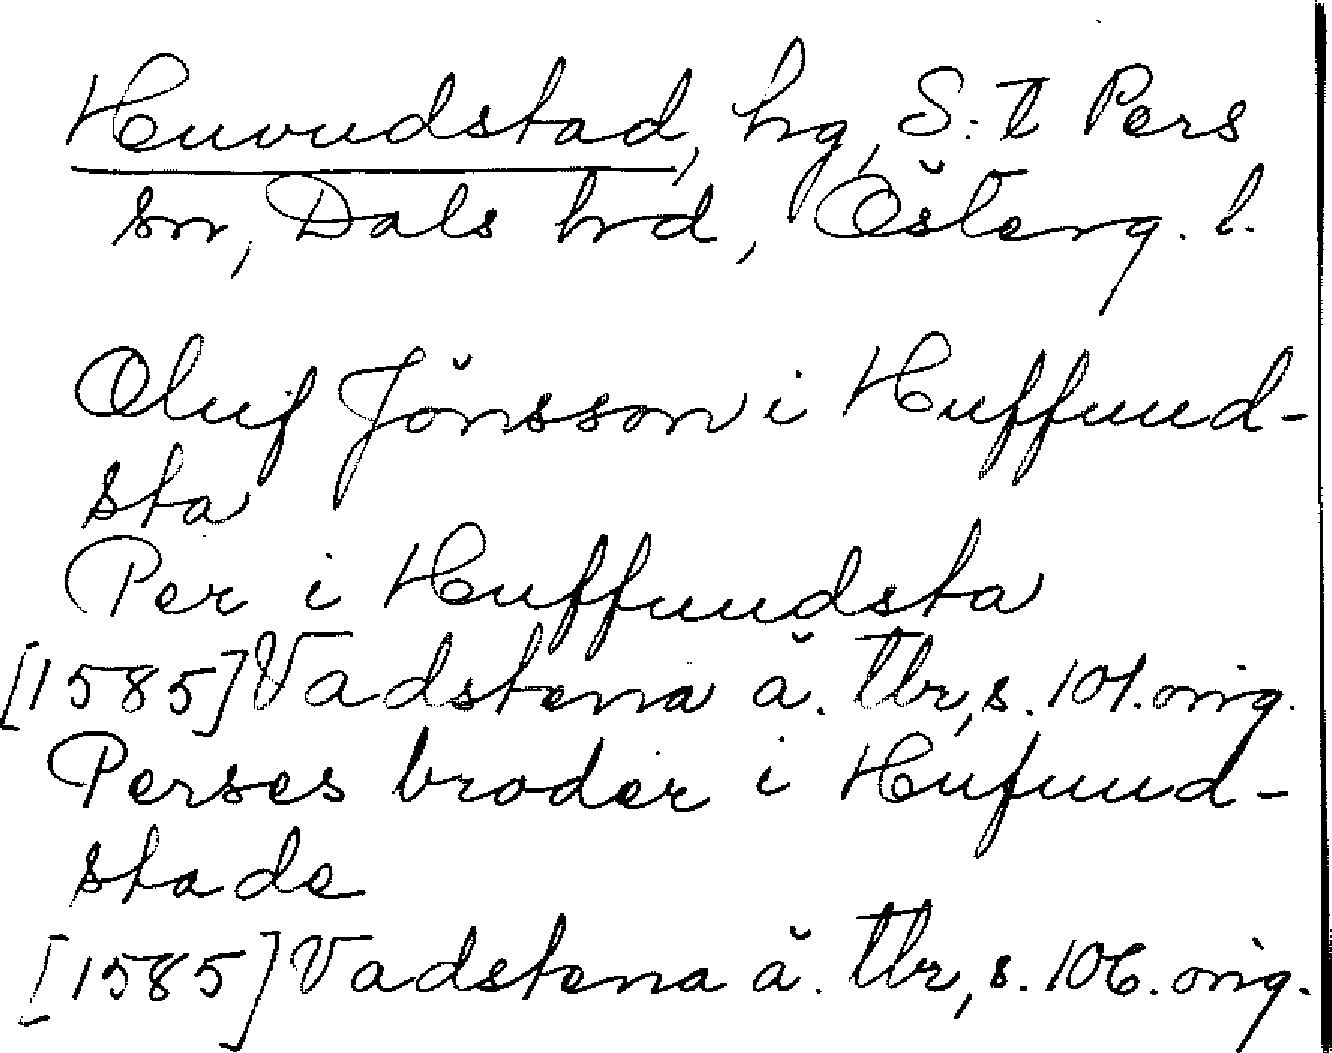 Huvudstad, hg, S:t Pers
sn, Dals hrd, Österg. l.
Oluf Jönsson i Huffuud-
sta
Per i Huffuudsta
[1585] Vadstena ä. tbr, s. 101. orig.
Perses broder i Hufuud-
stade
[1585] Vadstena ä. tbr, s. 106. orig.